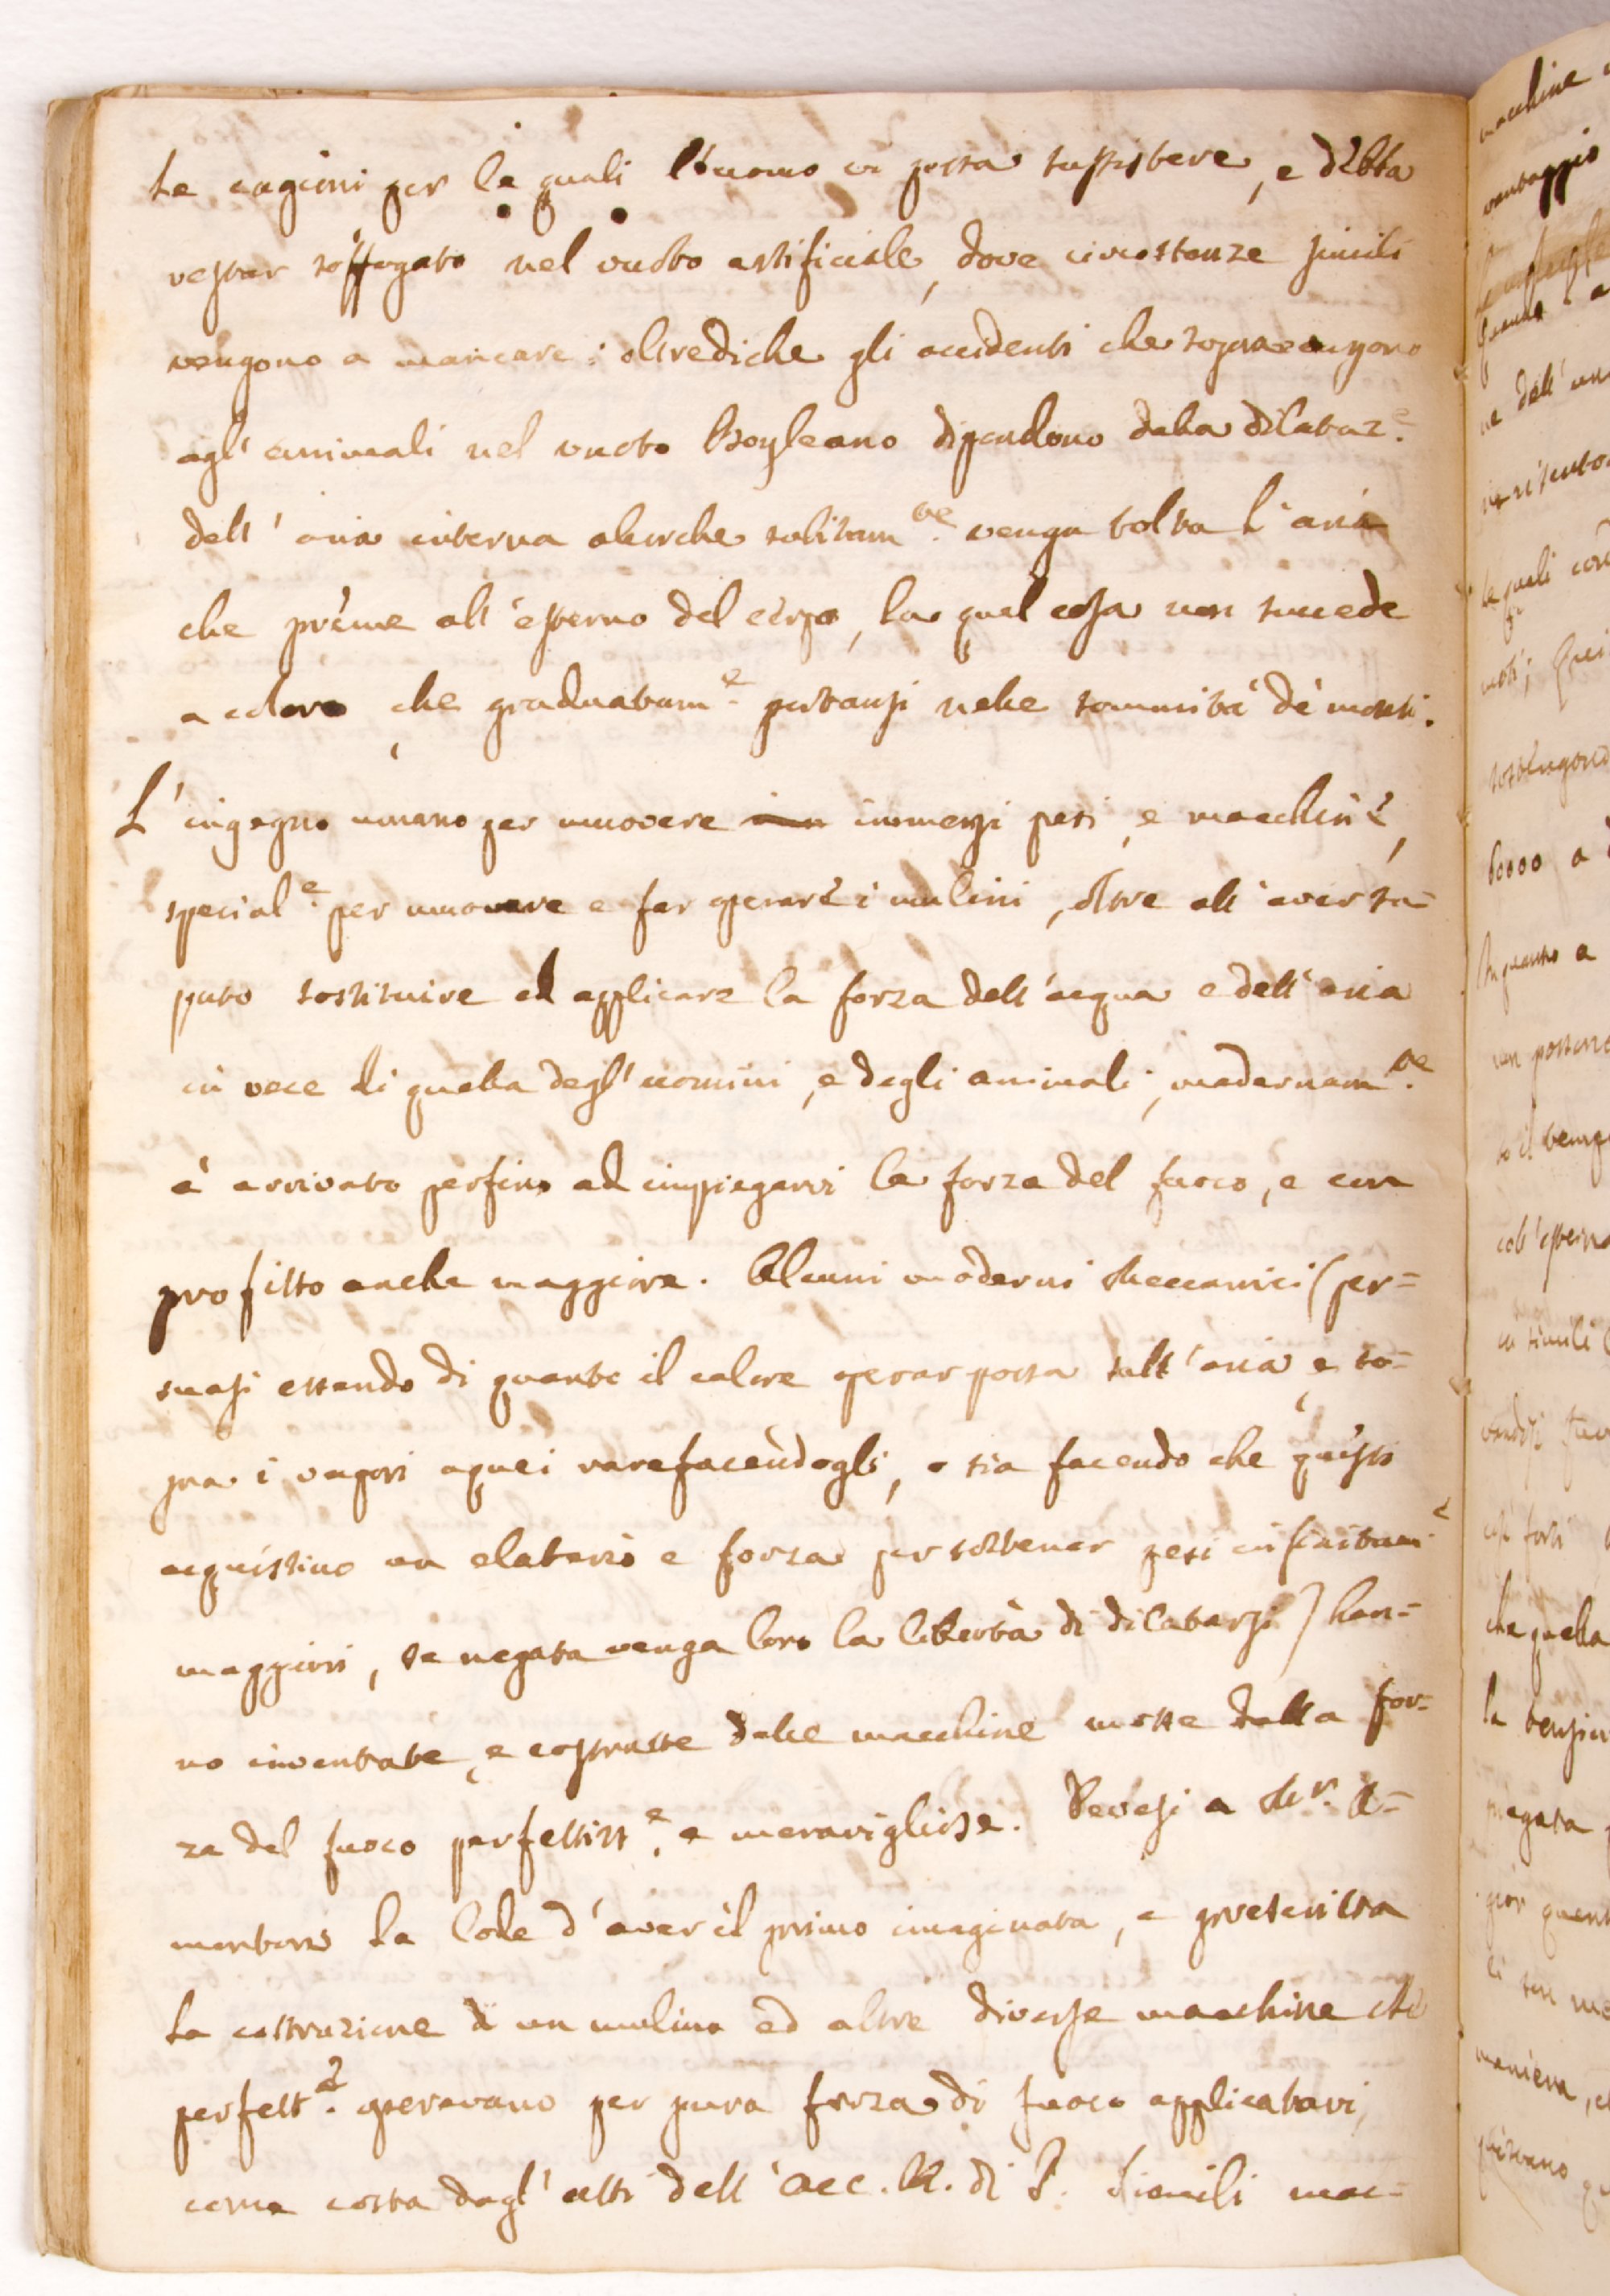 le cagioni per le quali l'uomo vi possa sussistere, e debba
restar soffogato nel vuoto artificiale, dove circostanze simili
vengono a mancare: oltrediche gli accidenti che sopravengono
agl'animali nel vuoto Boyleano dipendono dalla dilataz.e
dell'aria interna alorche solitam.te venga tolta l'aria
che preme all'esterno del corpo, la qual cosa non succede
a coloro, che graduatam.e portansi nelle sommità de monti.
L'ingegno umano per muovere immensi pesi, e macchine,
special.e per muovere e far operare i mulini, oltre all'aver sa-
puto sostituire ed applicare la forza dell'acqua e dell'aria
in vece di quella degl'uomini, e degli animali, modernam.te
è arrivato perfino ad impiegarvi la forza del fuoco, e con
profitto anche maggiore. Alcuni moderni Meccanici (per=
suasi essendo di quanto il calore operar possa sull'aria, e so=
pra i vapori aquei rarefacendogli, o sia facendo che questi
acquistino un elaterio e forza per sostener pesi infinitam.e
maggiori, se negata venga loro la libertà di dilatarsi) han=
no inventate, e costrutte delle macchine mosse dalla for=
za del fuoco perfettiss.e, e meravigliose. Devesi a Mr. A=
montons la lode d'aver il primo imaginata, e prescritta
la costruzione d un mulino ed altre diverse macchine che
perfett.e operavano per pura forza di fuoco applicatavi,
come costa dagl'atti dell'Acc. R. di P. Simili mac=
macchine
vantaggio
ne dell'
le quali
moti;
sostengono
60000 a
In quanto a
non possono
to il
coll'
simili
così forti
che quella
la
piegata
maniera,